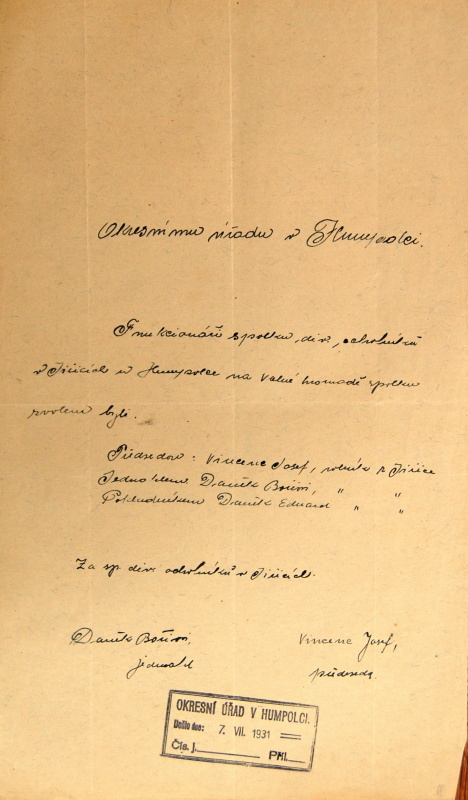 Okresnímu úřadu v Humpolci.
Funkcionáři spolku, div. ochotníků
v Jiřicích u Humpolce na valné hromadě spolku
zvoleni byli.
Předsedou: Vincenc Josef, rolník z Jiřice
Jednatelem Daněk " "
Pokladníkem Daněk Eduard " "
Za sp. div. ochotníků v Jiřicích.
Daněk
Vincenc Josef,
jednatel
předseda.
OKRESNÍ ÚŘAD V HUMPOLCI.
Došlo dne: 7. VII. 1931
Čís. j. Příl.